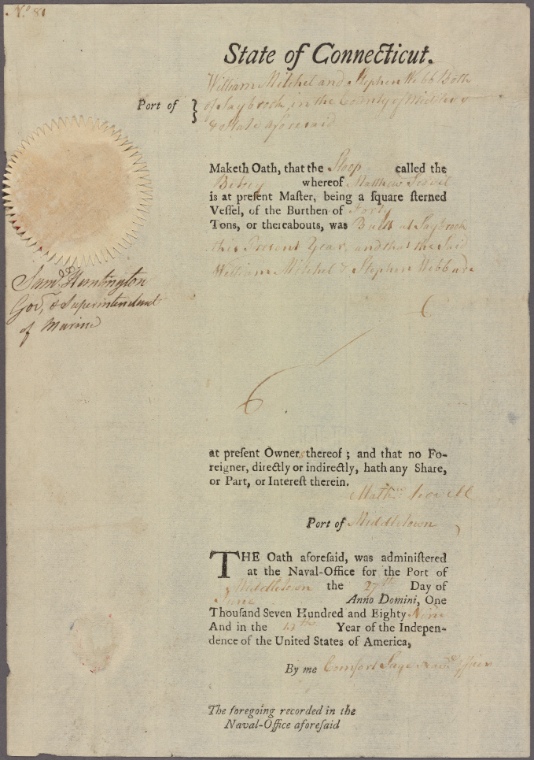 No. 81
State of Connecticut.
William Mitchel and Stephen Webb Both
Port of } of Saybrook in the County of
& State aforesaid
Maketh Oath, that the Sloop called the
Betsey whereof Matthew
is at present Master, being a ſquare ſterned
Veſſel, of the Burthen of Forty
Tons, or thereabouts, was Built at Saybrook
this Present Year, and that the Said
William Mitchel & Stephen Webb are
Saml. Huntington
Gov. & Superintendant
of Marine
at preſent Owners thereof ; and that no Fo-
reigner, directly or indirectly, hath any Share,
or Part, or Intereſt therein.
Port of Middletown
THE Oath aforeſaid, was adminiſtered
at the Naval-Office for the Port of
Middletown the 27th Day of
June Anno Domini, One
Thouſand Seven Hundred and Eighty Nine
And in the 13th Year of the Indepen-
dence of the United States of America,
By me Comfort Sage Naval Officer
The foregoing recorded in the
Naval-Office aforeſaid